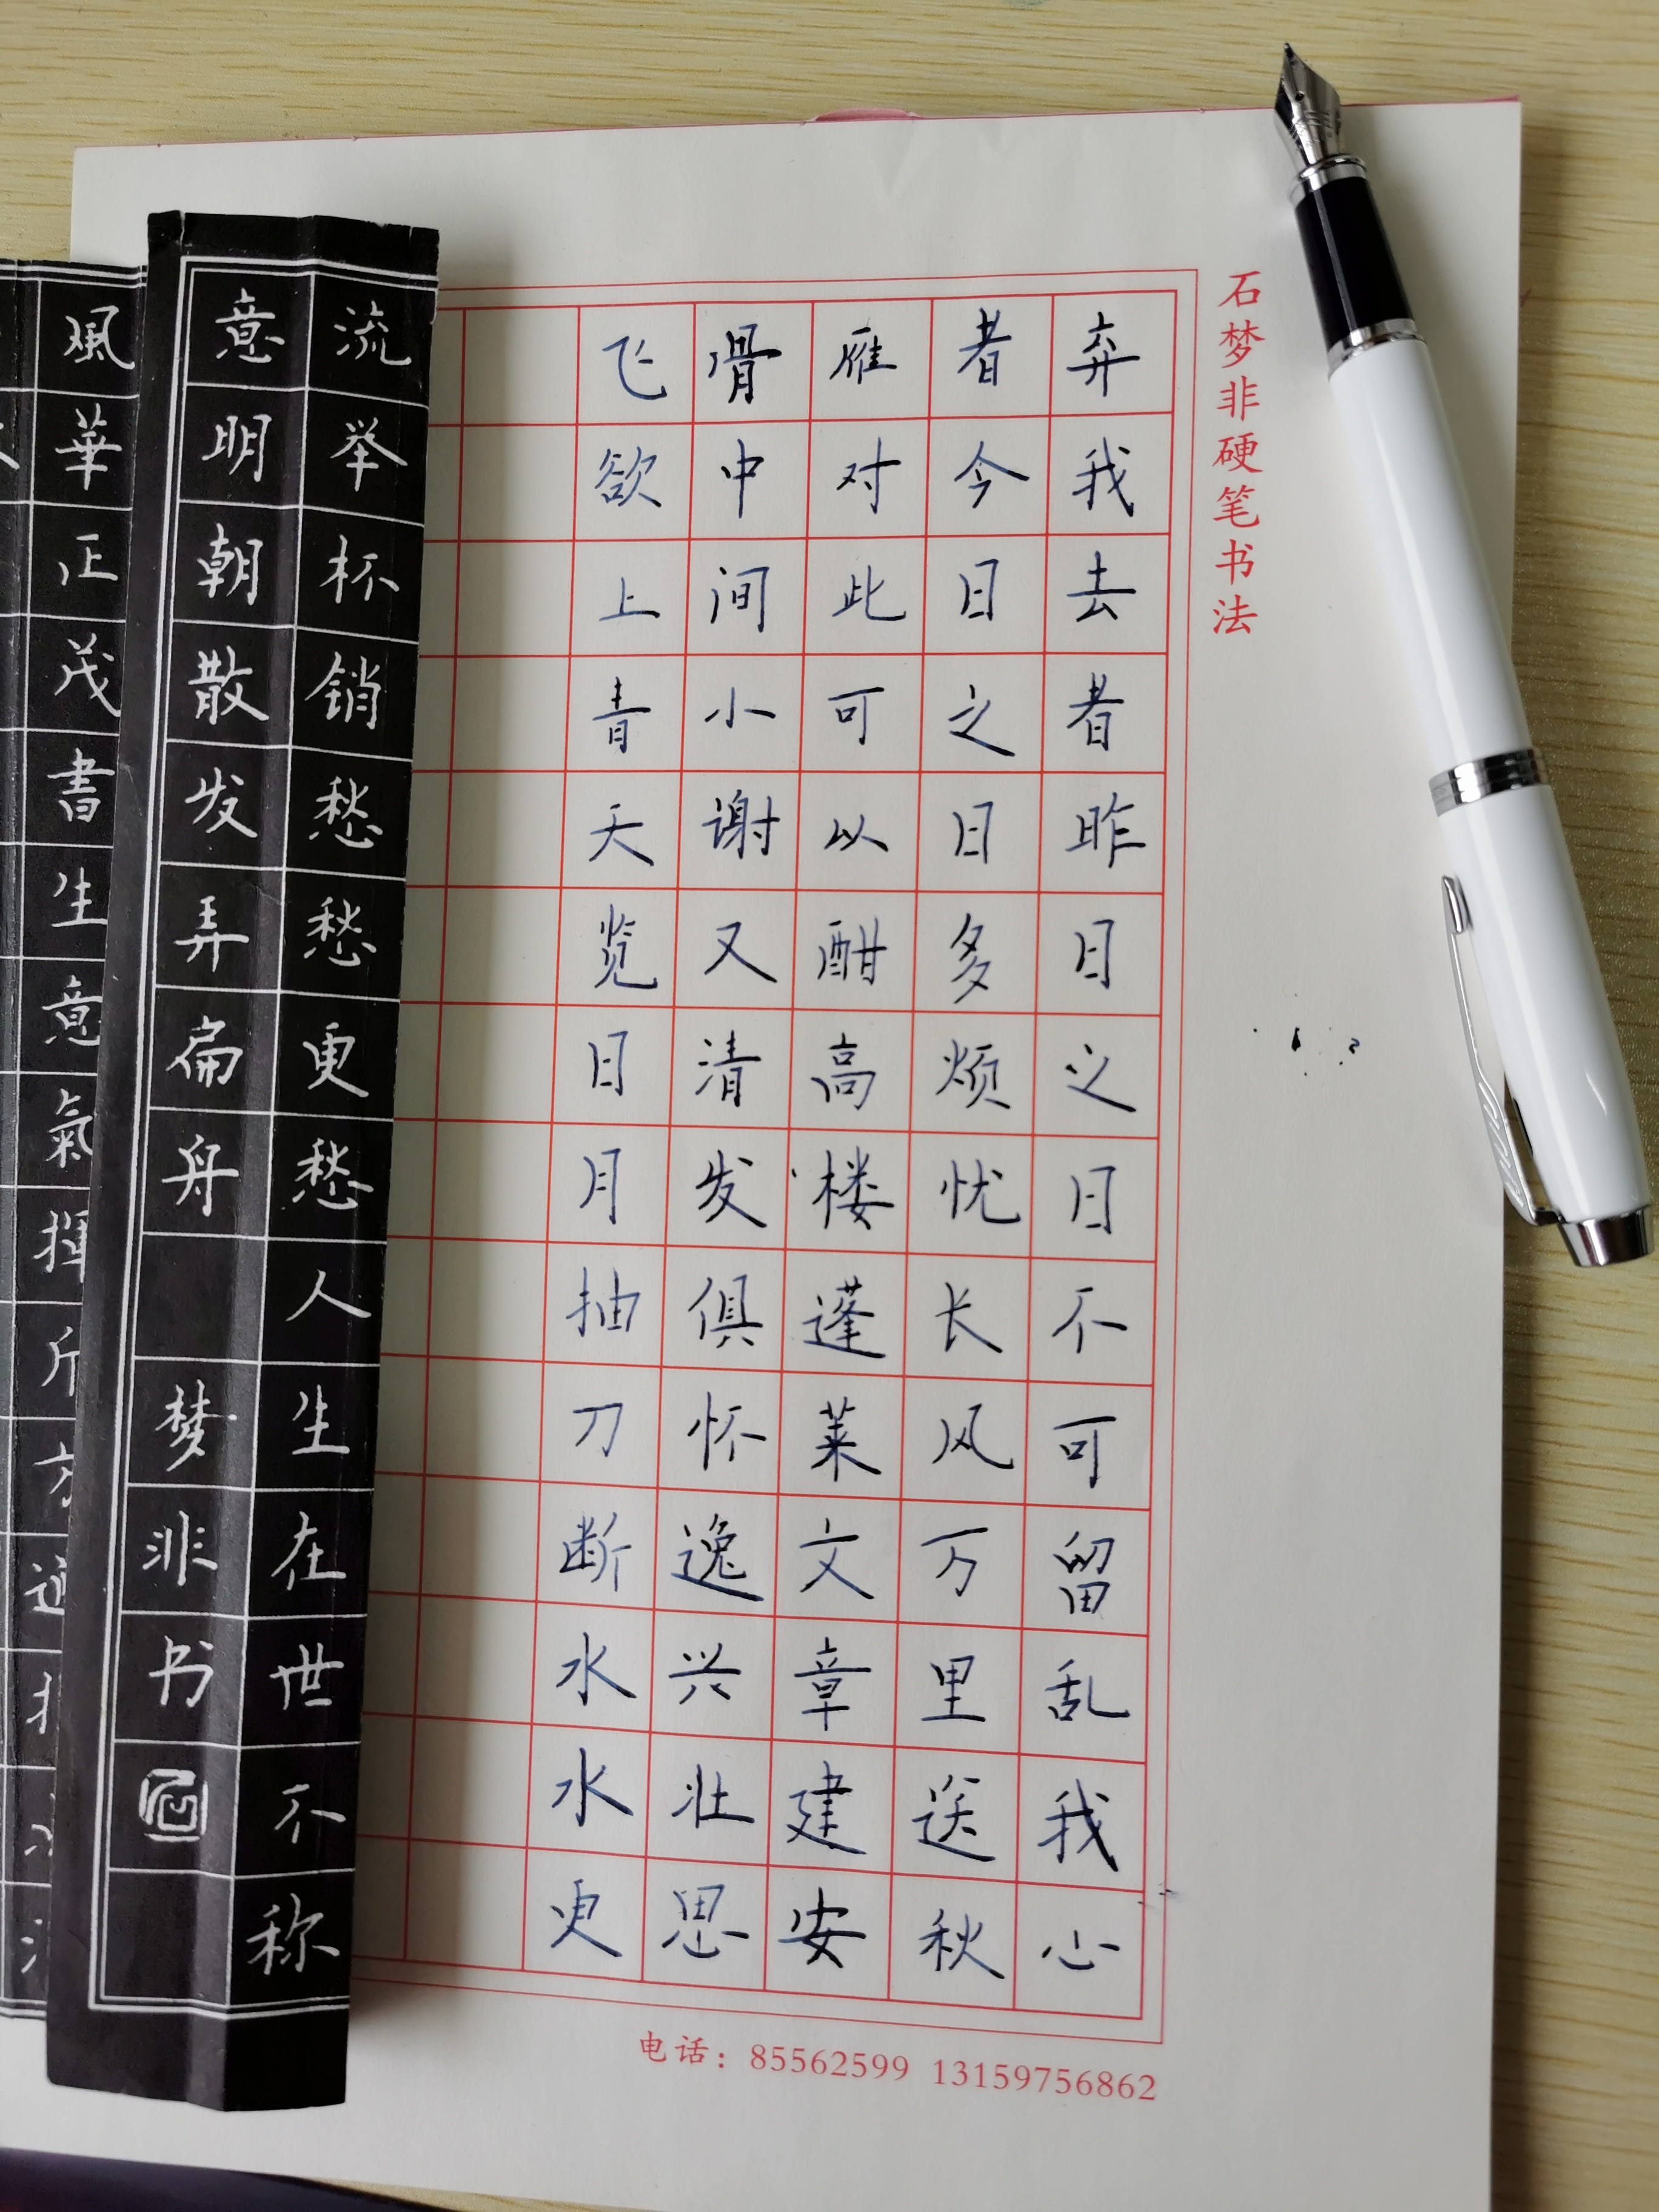 石梦非硬笔书法
弃我去者昨日之日不可留乱我心
者今日之日多烦忧长风万里送秋
雁对此可以酣高楼蓬莱文章建安
骨中间小谢又清发俱怀逸兴壮思
飞欲上青天览日月抽刀断水水更
电话：85562599 13159756862
流举杯销愁愁更愁人生在世不称
意明朝散发弄扁舟 梦非书
風華正茂書生意氣揮斥方遒